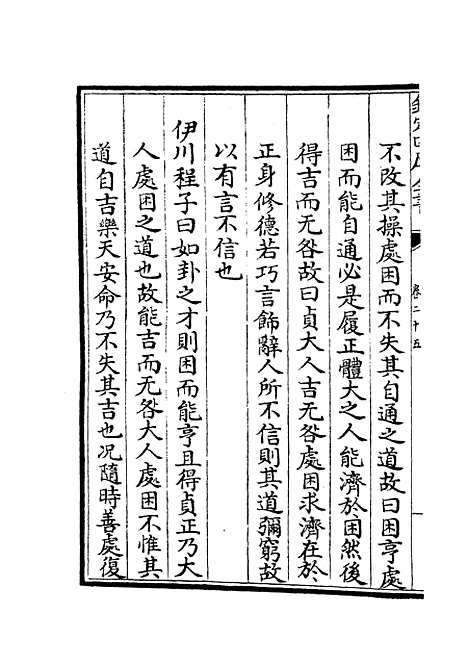 欽定四庫全書
卷二十五
不改其操處困而不失其自通之道故曰困亨處
困而能自通必是履正體大之人能濟於困然後
得吉而无咎故曰貞大人吉无咎處困求濟在於
正身修德若巧言飾辭人所不信則其道彌窮故
以有言不信也
伊川程子曰如卦之才則困而能亨且得貞正乃大
人處困之道也故能吉而无咎大人處困不惟其
道自吉樂天安命乃不失其吉也况隨時善處復